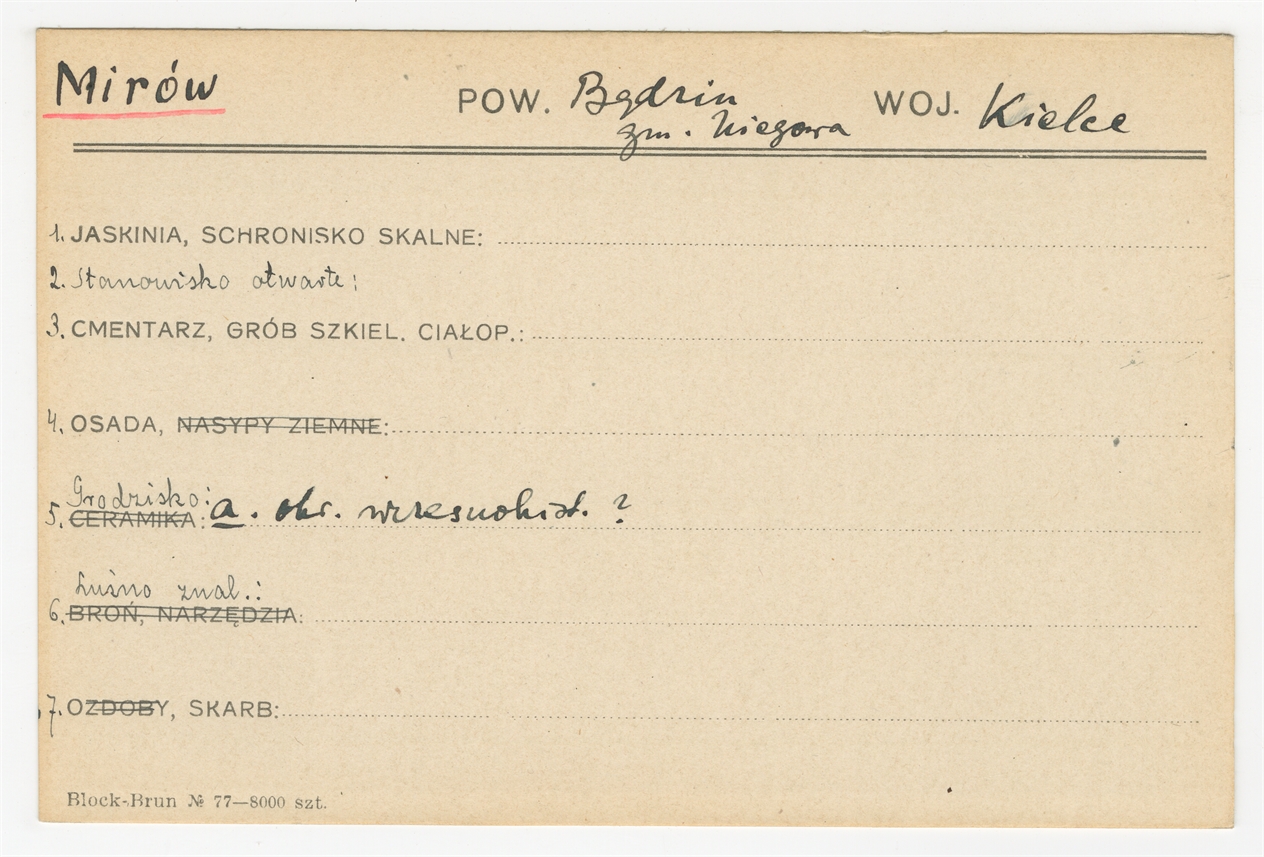 Mirów POW. Będzin WOJ. Kielce
gm. Niegowa
1. JASKINIA, SCHRONISKO SKALNE:
2. Stanowisko otwarte:
3. CMENTARZ, GRÓB SZKIEL. CIAŁOP.:
4. OSADA, NASYPY ZIEMNE:
Grodzisko:
5. CERAMIKA: a. okr. wczesnohist. ?
Luźno znal.:
6. BROŃ, NARZĘDZIA:
7. OZDOBY, SKARB:
Block-Brun № 77—8000 szt.